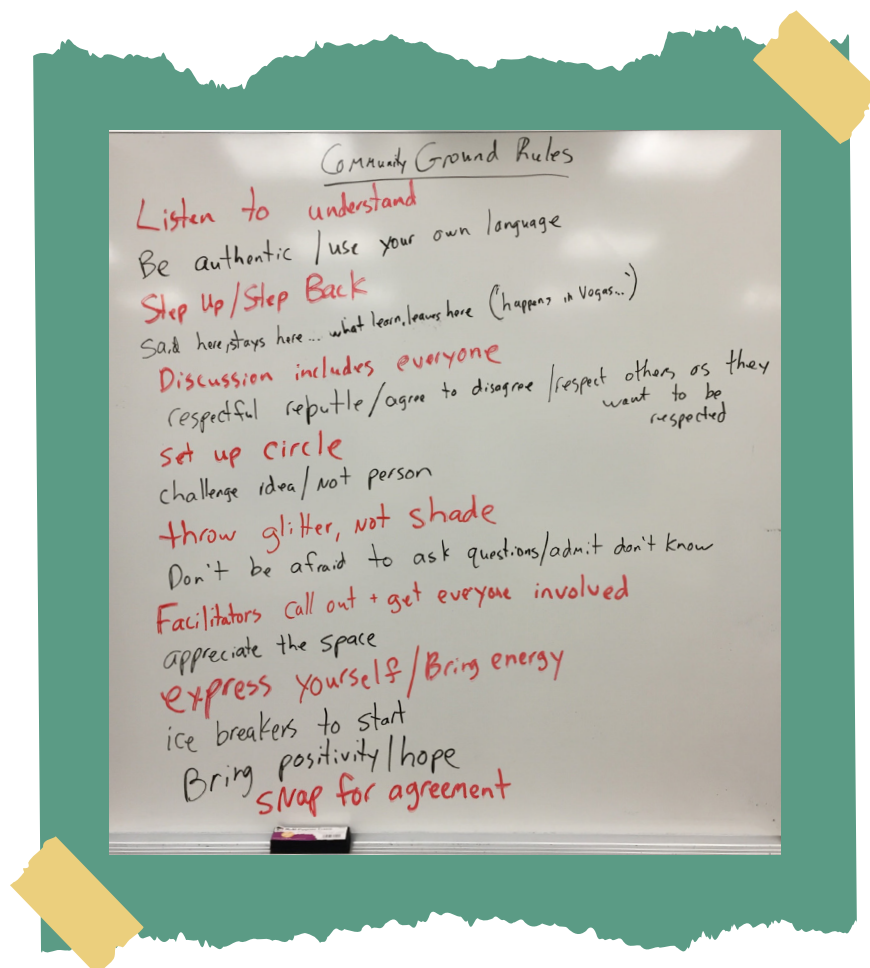 Community Ground Rules
Listen to understand
Be authentic / use your own language
Step Up/Step Back
Said here, stays here... what learn, leaves here (happens in Vegas...)
Discussion includes everyone
respectful reputle/agree to disagree/respect others as they
want to be
respected
set up circle
challenge idea/Not person
throw glitter, Not shade
Don't be afraid to ask questions/admit don't know
Facilitators call out + get everyone involved
appreciate the space
express yourself/Bring energy
ice breakers to start
Bring positivity/hope
SNap for agreement